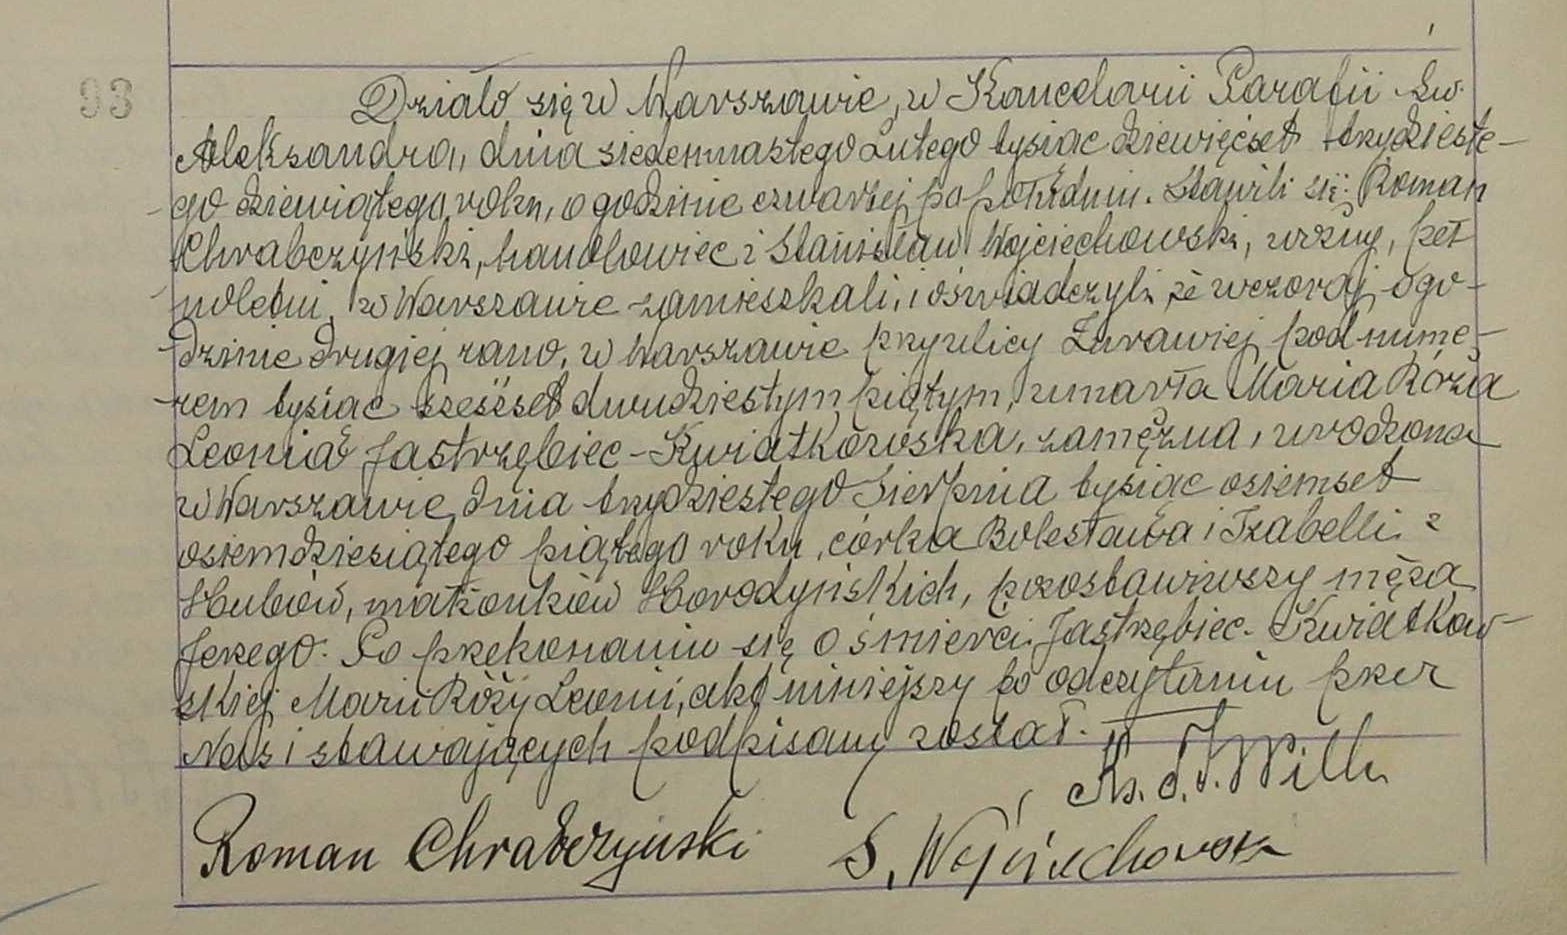 93
Działo się w Warszawie, w Kancelarii Parafii Św.
Aleksandra, dnia siedemnastego Lutego tysiąc dziewięćset trzydzieste-
go dziewiątego roku, o godzinie czwartej po południu. Stawili się: Roman
Chrabczyński, handlowiec i Stanisław Wojciechowski, woźny, peł
noletni, w Warszawie zamieszkali, i oświadczyli, że wczoraj, o go-
dzinie drugiej rano, w Warszawie przy ulicy Żurawiej pod nume-
rem tysiąc sześćset dwudziestym piątym, umarła Maria Róża
Leonia Jastrzębiec-Kwiatkowska, zamężna, urodzona
w Warszawie, dnia trzydziestego Sierpnia tysiąc osiemset
osiemdziesiątego piątego roku, córka Bolesława i Izabelli z
małżonków Horodyńskich, pozostawiwszy męża
Jerzego. Po przekonaniu się o śmierci Jastrzębiec-Kwiatkow-
skiej Marii Róży Leonii, akt niniejszy po odczytaniu przez
Nas i stawających podpisany został.
Roman Chrabczyński S. Wojciechowski